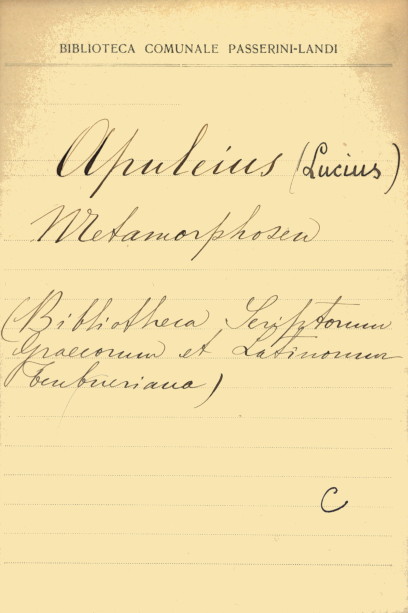 BIBLIOTECA COMUNALE PASSERINI-LANDI
Apuleius (Lucius)
Metamorphoseu
(Bibliotheca Scriptorum
Graecorum et Latinorum
Teubneriana)
C